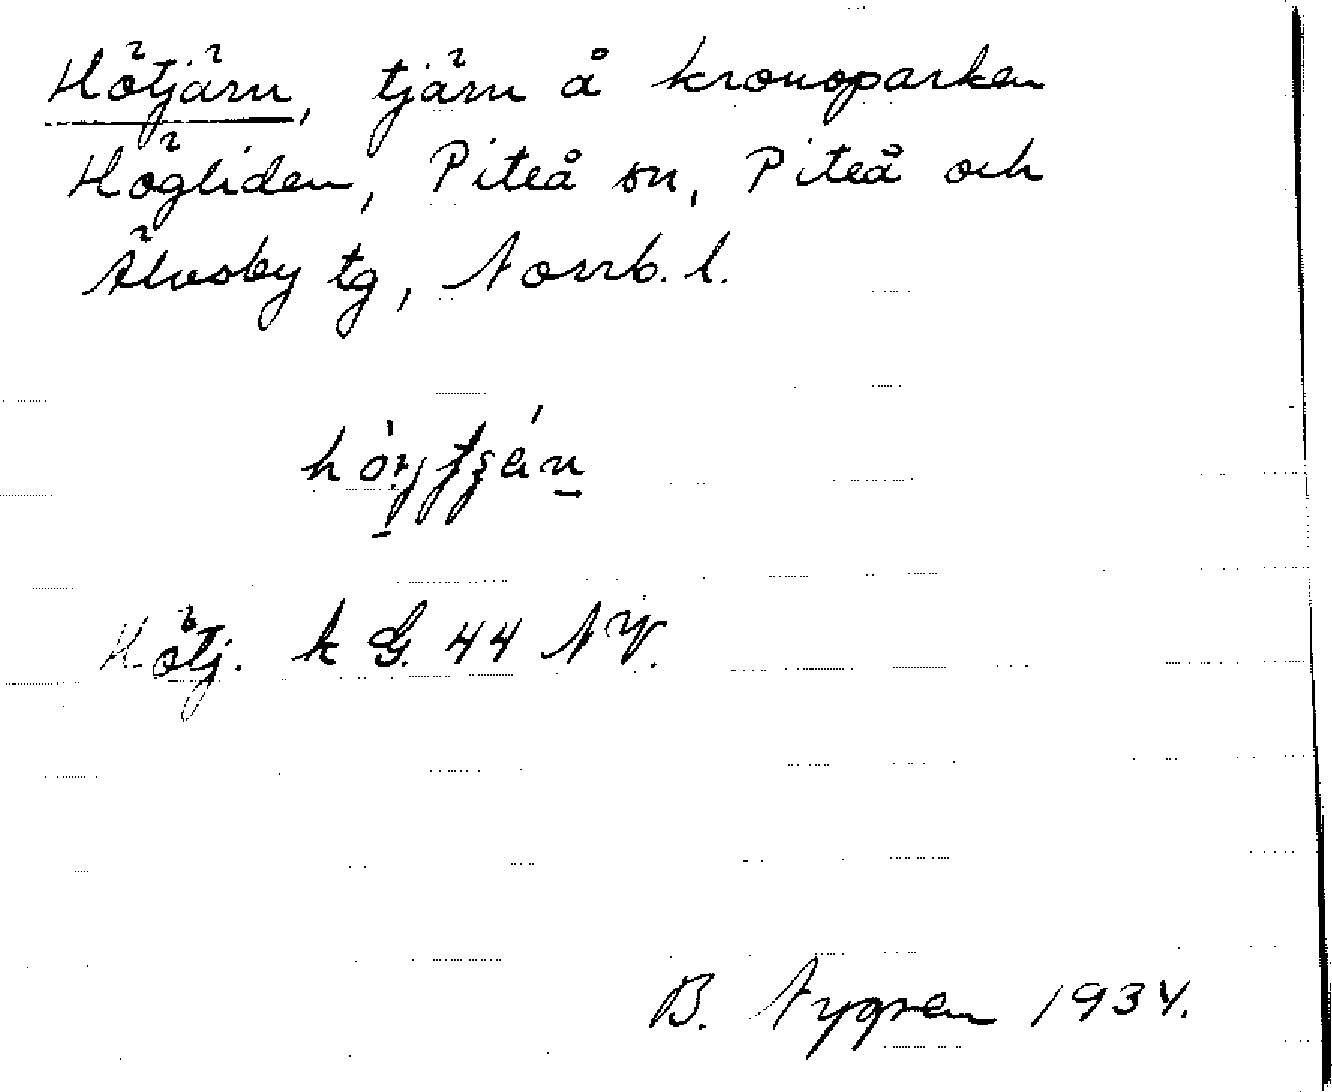 Hötjärn, tjärn å kronoparken
Högliden, Piteå sn, Piteå och
Älvsby tg, Norrb. l.
Hötj. k G. 44 NV.
B. Nygren 1934.